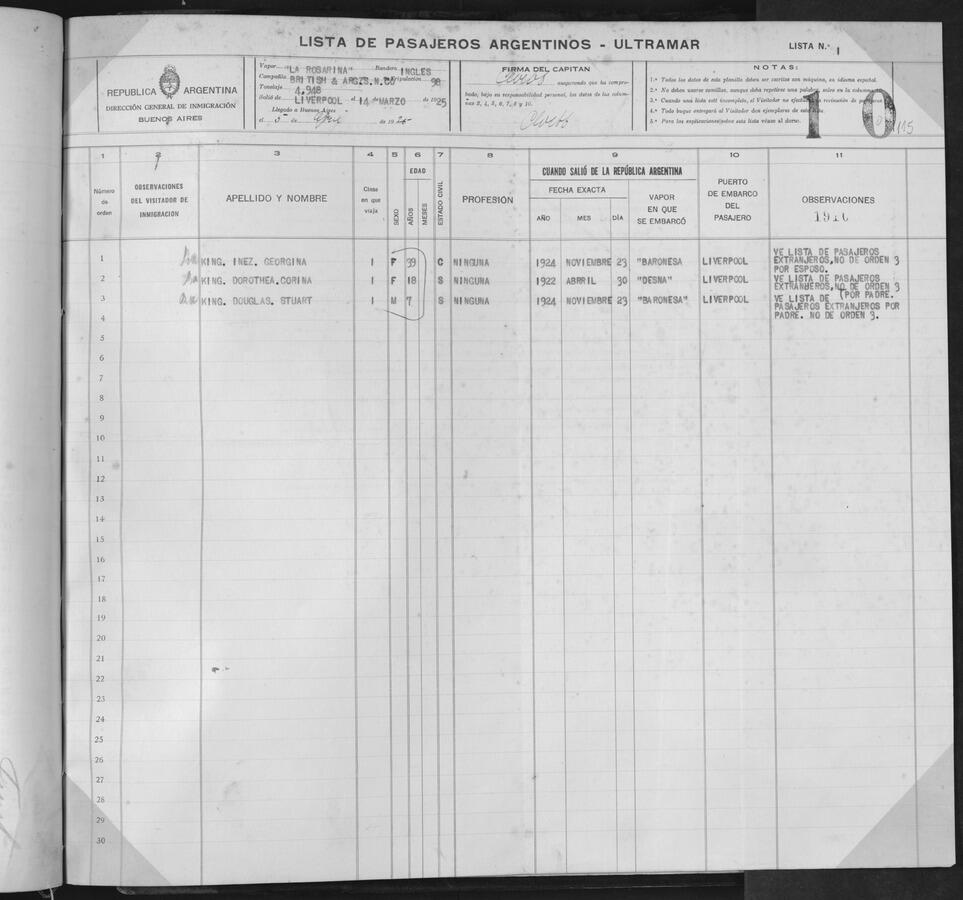 LISTA DE PASAJEROS ARGENTINOS - ULTRAMAR
LISTA N.º 1
REPUBLICA ARGENTINA
DIRECCIÓN GENERAL DE INMIGRACIÓN
BUENOS AIRES
Vapor "LA ROSARINA" Bandera INGLES
Compañía BRITISH & ARG.S.N.CO Tripulación 98
Tonelaje 4.948
Salió de LIVERPOOL el 14 de MARZO de 1925
Llegado a Buenos Aires
el 5 de de 1925
FIRMA DEL CAPITAN
asegurando que ha compro-
bado, bajo su responsabilidad personal, los datos de las colum-
nas 3, 4, 5, 6, 7, 8 y 10.
NOTAS:
1.ª Todos los datos de esta planilla deben ser escritos con máquina, en idioma español.
2.ª No deben usarse comillas, aunque deba repetirse una palabra, salvo en la columna
3.ª Cuando una lista esté incompleta, el Visitador no efectuará la revisación de pasajeros
4.ª Todo buque entregará al Visitador dos ejemplares de esta lista
5.ª Para las explicaciones sobre esta lista véase al dorso.
10
1 2 3 4 5 6 7 8 9 10 11
Número de orden
OBSERVACIONES DEL VISITADOR DE INMIGRACIÓN
APELLIDO Y NOMBRE
Clase en que viaja
SEXO
EDAD
AÑOS
MESES
ESTADO CIVIL
PROFESIÓN
CUANDO SALIÓ DE LA REPÚBLICA ARGENTINA
FECHA EXACTA
AÑO MES DÍA
VAPOR EN QUE SE EMBARCÓ
PUERTO DE EMBARCO DEL PASAJERO
OBSERVACIONES
1910
1 KING. INEZ. GEORGINA 1 F 39 C NINGUNA 1924 NOVIEMBRE 23 "BARONESA LIVERPOOL VE LISTA DE PASAJEROS
EXTRANJEROS,NO DE ORDEN 3
POR ESPOSO.
2 KING. DOROTHEA.CORINA 1 F 18 S NINGUNA 1922 ABRRIL 30 "DESNA" LIVERPOOL VE LISTA DE PASAJEROS
EXTRANJEROS,NO DE ORDEN 3
(POR PADRE.
3 KING. DOUGLAS. STUART 1 M 7 S NINGUNA 1924 NOVIEMBRE 23 "BARONESA" LIVERPOOL VE LISTA DE
PASAJEROS EXTRANJEROS POR
PADRE. NO DE ORDEN 3.
4
5
6
7
8
9
10
11
12
13
14
15
16
17
18
19
20
21
22
23
24
25
26
27
28
29
30